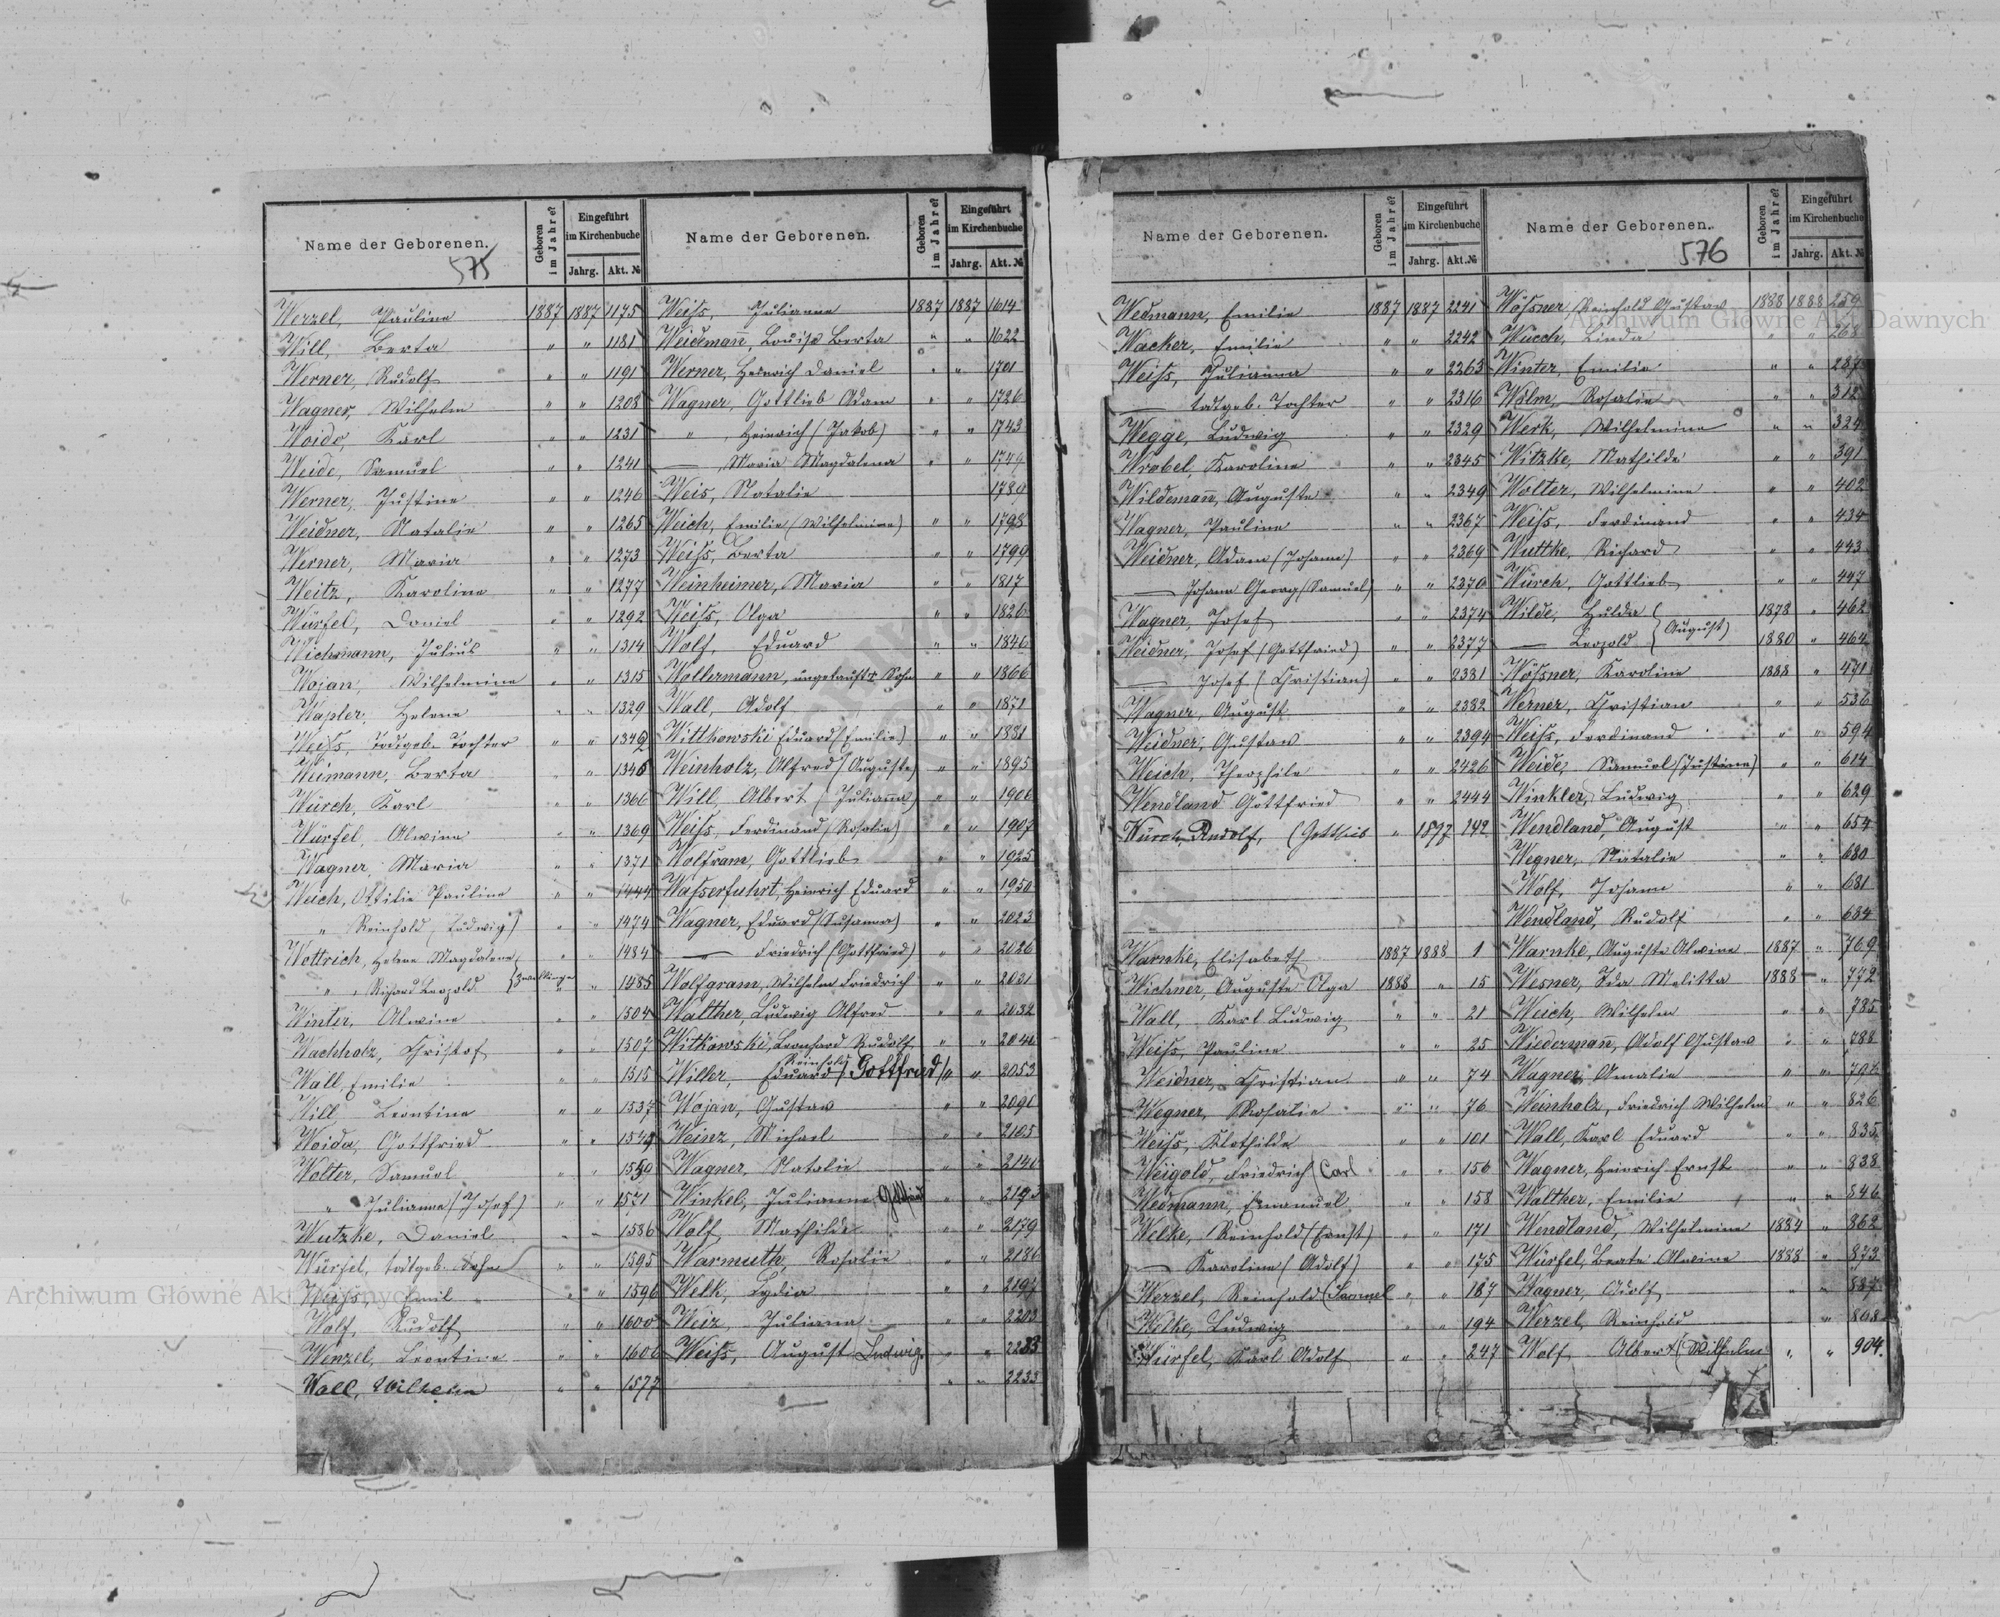 Name der Geborenen.
575
Geboren im Jahre?
Eingeführt im Kirchenbuche
Jahrg. Akt. №
Werzel, Pauline 1887 1887 1175
Will, Berta " " 1181
Werner, Rudolf " " 1191
Wagner, Wilhelm " " 1208
Woide, Karl " " 1231
Weide, Samuel " " 1241
Werner, Justine " " 1246
Weidner, Natalie " " 1265
Werner, Maria " " 1273
Weitz, Karoline " " 1277
Würfel, Daniel " " 1292
Wichmann, Julius " " 1314
Wojan, Wilhelmine " " 1315
Wapler, Helene " " 1329
Weiss, Todtgeb. Tochter " " 1342
Weimann, Berta " " 1345
Würch, Karl " " 1366
Würfel, Alwine " " 1369
Wagner, Maria " " 1371
Weich, Ottilie Pauline " " 1444
" Reinhold (Ludwig) " " 1474
Wottrich, Helene Magdalene " " 1484
" , Richard Leopold } Zwillinge " " 1485
Winter, Alwine " " 1504
Wachholz, Christof " " 1507
Wall, Emilie " " 1515
Will Leontine " " 1537
Woida, Gottfried " " 1542
Wolter, Samuel " " 1550
" Julianna (Josef) " " 1571
Wutzke, Daniel " " 1586
Würfel, todtgeb. Sohn " " 1595
Weiss, Emil " " 1596
Wolf, Rudolf " " 1600
Wenzel, Leontine " " 1606
Wall, Wilhelm " " 1577
Name der Geborenen.
Geboren im Jahre?
Eingeführt im Kirchenbuche
Jahrg. Akt. №
Weiss, Julianne 1887 1887 1614
Weidemann, Louise Berta " " 1622
Werner, Heinrich Daniel " " 1701
Wagner, Gottlieb Adam " " 1726
" , Heinrich (Jakob) " " 1743
— , Maria Magdalena " " 1749
Weis, Natalie 1780
Weich, Emilie (Wilhelmine) " " 1798
Weiss, Berta " " 1799
Weinheimer, Maria " " 1817
Weiss, Olga " " 1826
Wolf, Eduard " " 1846
Wollermann, ungetaufter Sohn " " 1866
Wall, Adolf " " 1871
Witthowski Eduard (Emilie) " " 1881
Weinholz, Alfred (Auguste) " " 1895
Will, Albert (Julianna) " " 1906
Weiss, Ferdinand (Rosalie) " " 1907
Wolfram, Gottlieb " " 1925
Wasserfuhrt, Heinrich Eduard " " 1950
Wagner, Eduard (Susanna) " " 2023
— Friedrich (Gottfried) " " 2026
Wolfgram, Wilhelm Friedrich " " 2031
Walther, Ludwig Alfred " " 2032
Witkowski, Leonhard Rudolf " " 2046
Reinhold
Willer, Eduard (Gottfried) " " 2053
Wojan, Gustav " " 2090
Weinz, Michael " " 2105
Wagner, Natalie " " 2140
Winkel, Julianna Gottfried " " 2193
Wolf, Mathilde " " 2179
Warmuth, Rosalie " " 2186
Welk, Lydia " " 2197
Weiz, Julianna " " 2203
Weiss, August Ludwig " " 2233
" " 2233
Name der Geborenen.
Geboren im Jahre?
Eingeführt im Kirchenbuche
Jahrg. Akt. №
Wedmann, Emilie 1887 1887 2241
Wacker, Emilie " " 2242
Weiss, Julianna " " 2263
— todtgeb. Tochter " " 2316
Wegge, Ludwig " " 2329
Wrobel, Karoline " " 2345
Wildemann, Auguste " " 2349
Wagner, Pauline " " 2367
Weidner, Adam (Johann) " " 2369
— Johann Georg (Samuel) " " 2370
Wagner, Josef " " 2374
Weidner, Josef (Gottfried) " " 2377
— Josef (Christian) " " 2381
Wagner, August " " 2382
Weidner, Gustav " " 2394
Weich, Theophile " " 2426
Wendland Gottfried " " 2444
Würch, Rudolf, (Gottlieb " 1897 142
Warnke, Elisabeth 1887 1888 1
Wichner, Auguste Olga 1888 " 15
Wall, Karl Ludwig " " 21
Weiss, Pauline " " 25
Weidner, Christian " " 74
Wegner, Rosalie " " 76
Weiss, Klothilde " " 101
Weigold, Friedrich (Carl " " 156
Wedmann, Emanuel " " 158
Welke, Reinhold (Ernst) " " 171
— Karoline (Adolf) " " 175
Werzel, Reinhold (Samuel " " 187
Welke, Ludwig " " 194
Würfel, Karl Adolf " " 247
Name der Geborenen.
576
Geboren im Jahre?
Eingeführt im Kirchenbuche
Jahrg. Akt. №
Wössner, Reinhold Gustav 1888 1888 254
Würch, Linda " " 268
Winter, Emilie " " 287
Wolm, Rosalie " " 312
Werk, Wilhelmine " " 324
Witzke, Mathilde " " 391
Wolter, Wilhelmine " " 402
Weiss, Ferdinand " " 434
Wuttke, Richard " " 443
Würch, Gottlieb " " 447
Wilde, Hulda 1878 " 462
— Leopold } (August) 1880 " 464
Wössner, Karoline 1888 " 491
Werner, Christian " " 536
Weiss, Ferdinand " " 594
Weide, Samuel (Justine) " " 614
Winkler, Ludwig " " 629
Wendland, August " " 654
Wegner, Natalie " " 680
Wolf, Johann " " 681
Wendland, Rudolf " " 684
Warnke, Auguste Alwine 1887 " 769
Wesner, Ida Melitta 1888 " 772
Weich, Wilhelm " " 785
Wiederman, Adolf Gustav " " 788
Wagner, Amalie " " 797
Weinholz, Friedrich Wilhelm " " 826
Wall, Karl Eduard " " 835
Wagner, Heinrich Ernst " " 838
Walther, Emilie " " 846
Wendland, Wilhelmine 1884 " 862
Würfel, Beate Alwine 1888 " 873
Wagner, Adolf " " 887
Werzel, Reinhold " 898
Wolf Albert (Wilhelm " " 904.
Archiwum Główne Akt Dawnych
Archiwum Główne Akt Dawnych